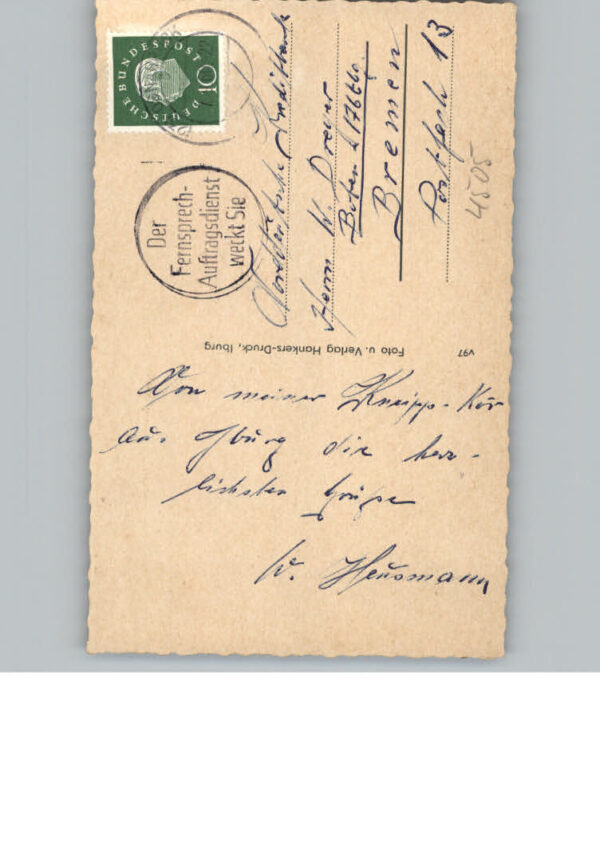 DEUTSCHE BUNDESPOST
10
Der
Fernsprech-
Auftragsdienst
weckt Sie
Norddeutsche Kreditbank
Herrn W. Dreyer
Bremen
Postfach 13
4505
Foto u. Verlag Hankers-Druck, Iburg
V97
Von meiner Kneipp-Kur
aus Iburg die herz-
lichsten Grüße
W. Heusmann